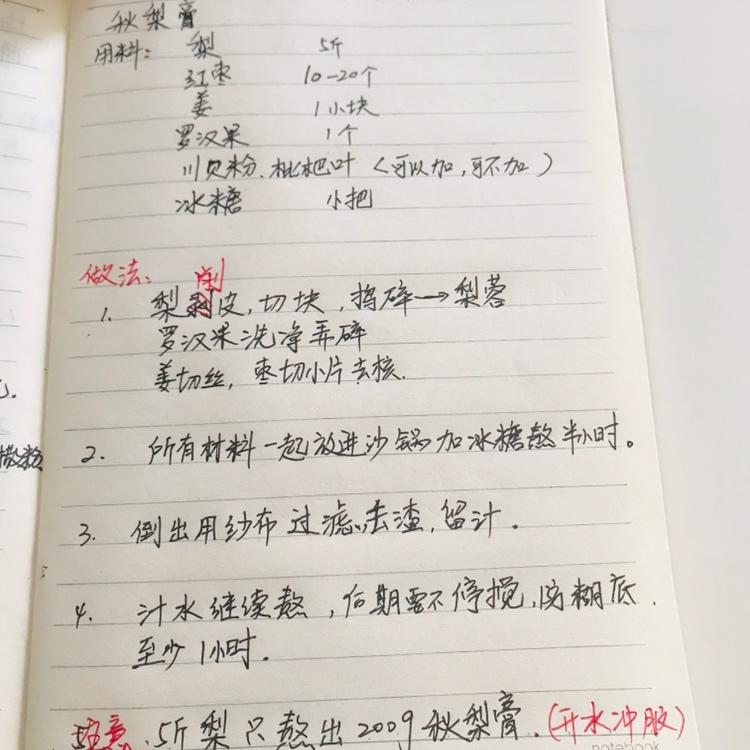 秋梨膏
用料： 梨 5斤
红枣 10-20个
姜 1小块
罗汉果 1个
川贝粉.枇杷叶（可以加,可不加）
冰糖 小把
做法： 削
1. 梨剥皮,切块,捣碎→梨蓉
罗汉果洗净弄碎
姜切丝,枣切小片去核.
2. 所有材料一起放进沙锅加冰糖熬半小时。
3. 倒出用纱布过滤,去渣,留汁.
4. 汁水继续熬,后期要不停搅,防糊底.
至少1小时.
注意.5斤梨只熬出200g秋梨膏.(开水冲服)
notebook